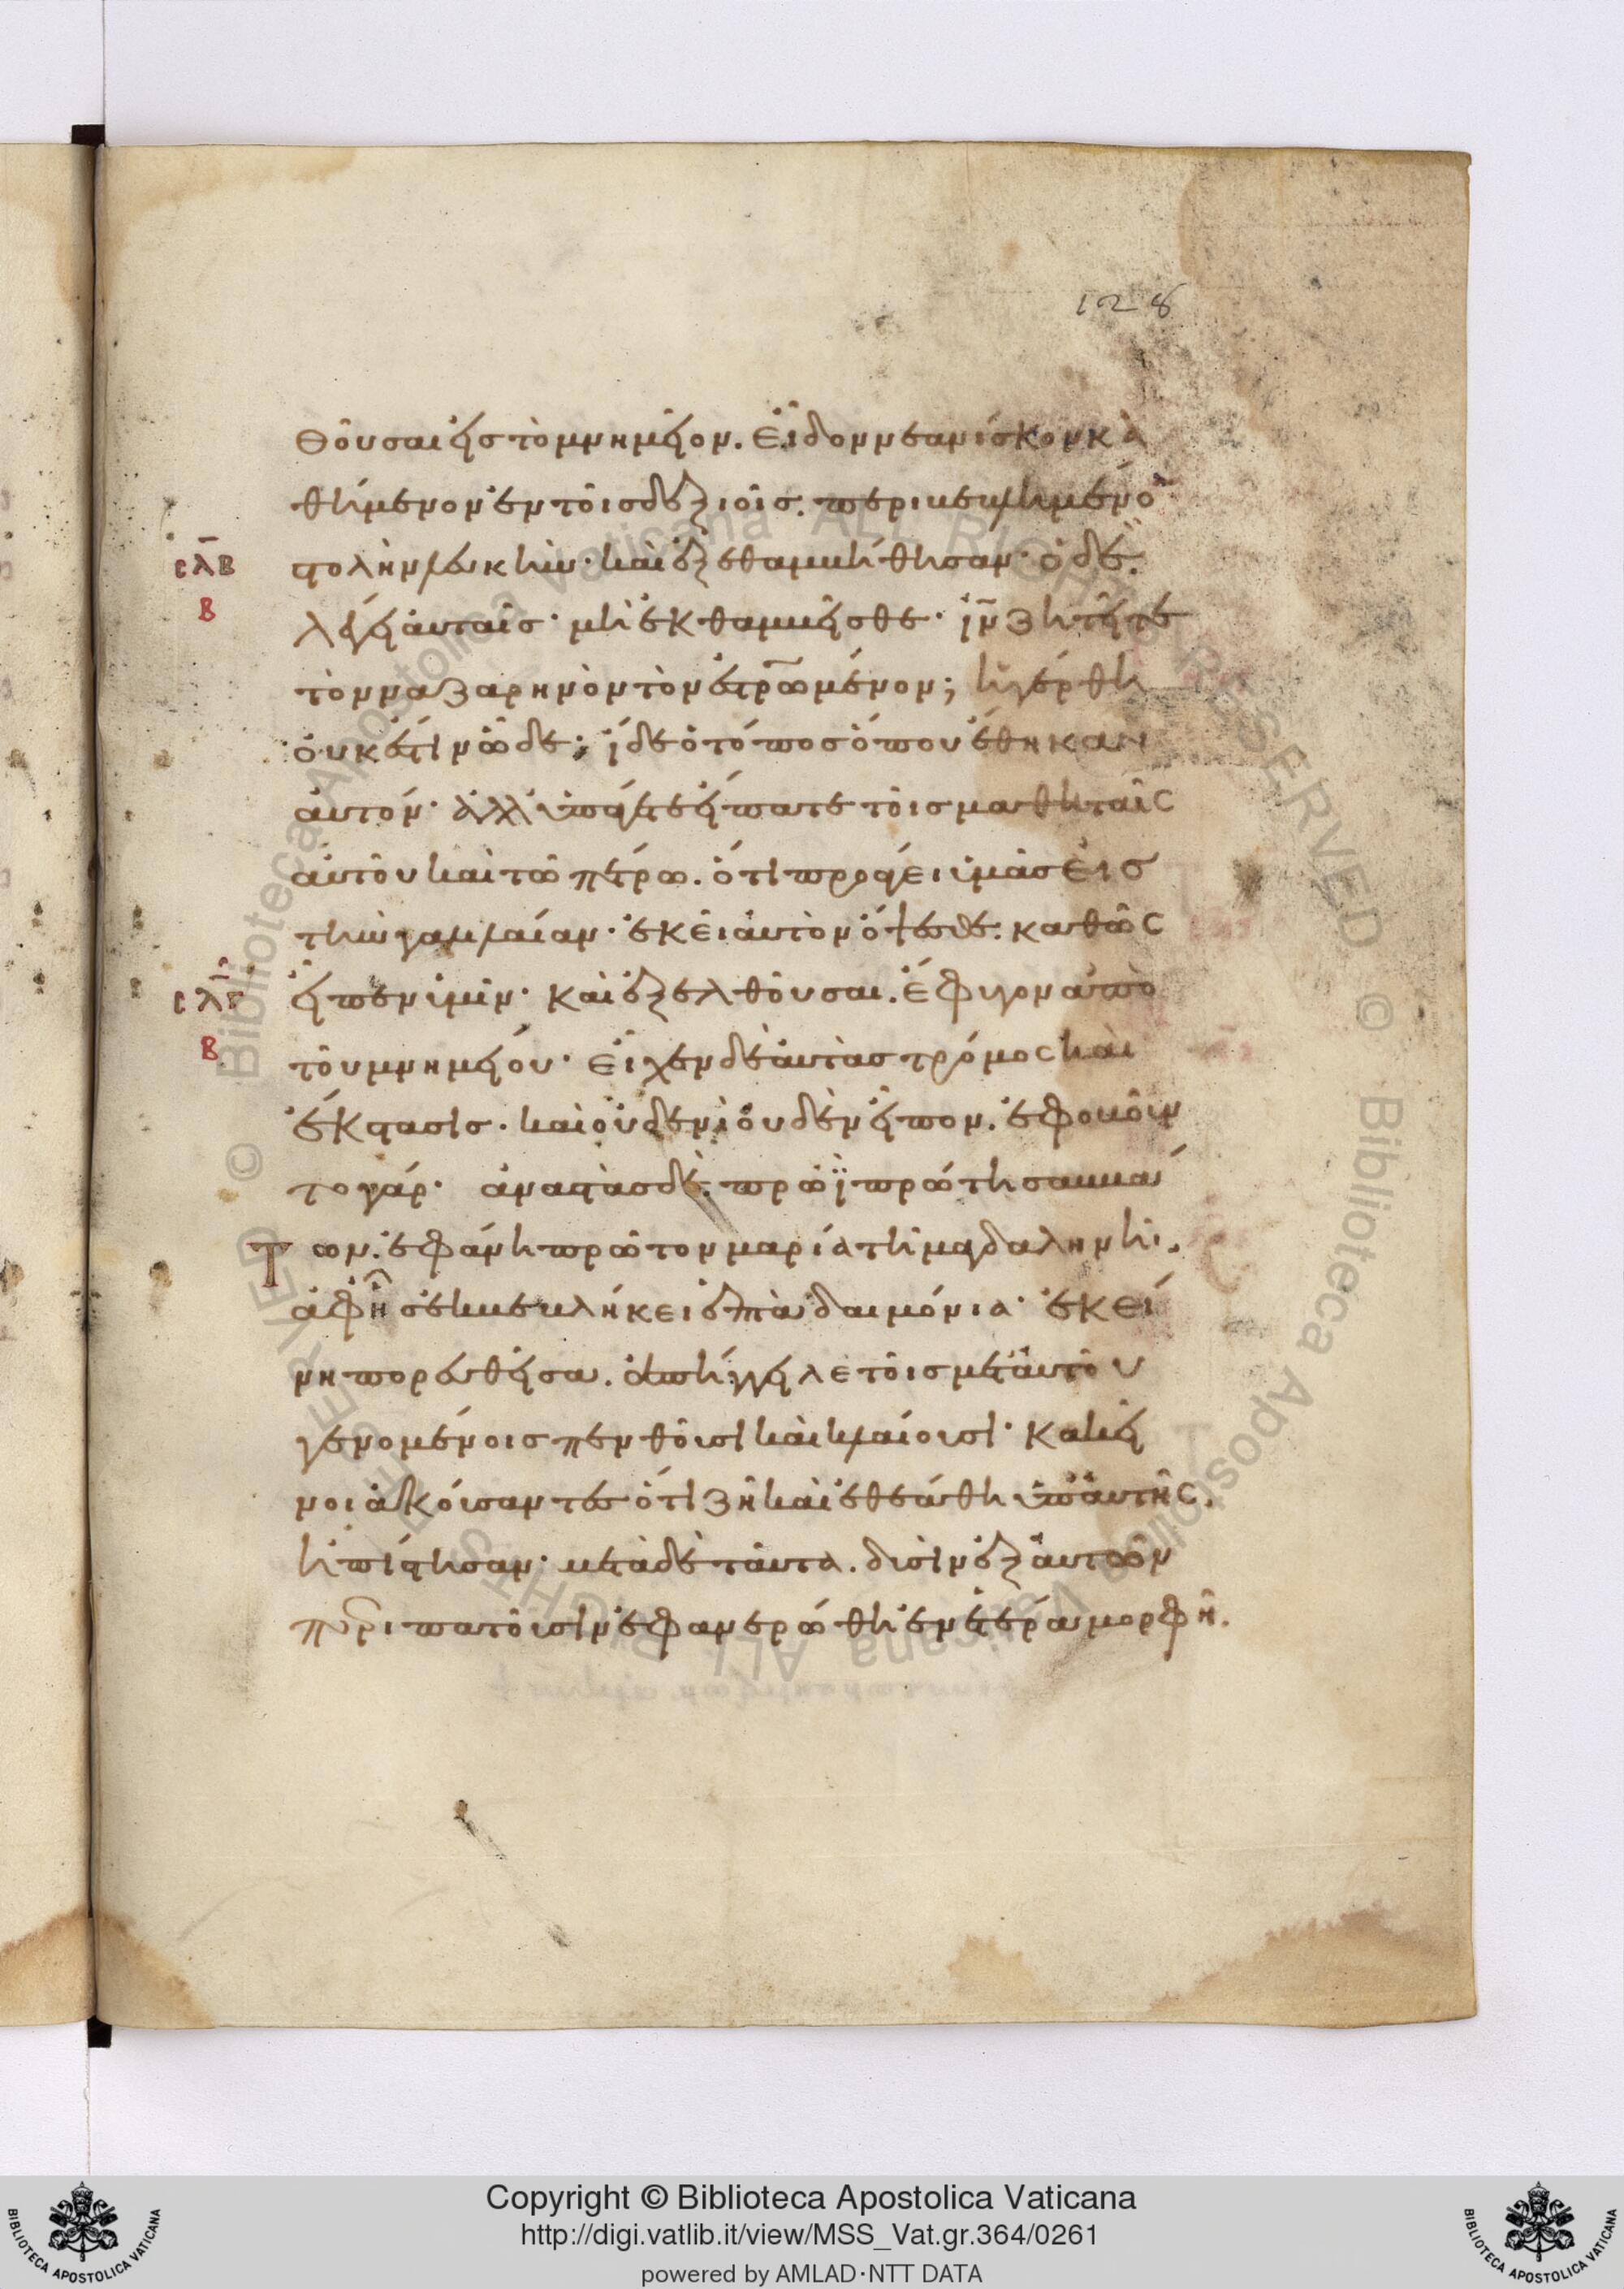 128
θοῦσαι εἰς τὸ μνημεῖον. εἶδον νεανίσκον κα
θήμενον ἐν τοῖς δεξιοῖς. περιβεβλημένο
στολὴν λευκήν· καὶ ἐξεθαμβήθησαν· ὁ δὲ
σλβ
β
λέγει αὐταῖς· μὴ ἐκθαμβεῖσθε· ἰν ζητεῖτε
τὸν ναζαρηνὸν τὸν ἐστρωμένον; ἠγέρθη
οὐκ ἔστιν ὧδε; ἴδε ὁ τόπος ὅπου ἔθηκαν
αὐτόν· ἀλλ' ὑπάγετε εἴπατε τοῖς μαθηταῖς
αὐτοῦ καὶ τῶ πέτρω. ὅτι προάγει ὑμᾶς εἰς
τὴν γαλιλαίαν· ἐκεῖ αὐτὸν ὄψεσθε. καθὼς
εἶπεν ὑμῖν· καὶ ἐξελθοῦσαι. ἔφυγον ἀπὸ
σλγ
β
τοῦ μνημείου· εἶχεν δὲ αὐτὰς τρόμος καὶ
ἔκστασις. καὶ οὐδενὶ οὐδὲν εἶπον. ἐφοβοῦν
το γάρ· ἀναστὰς δὲ. πρωῒ πρώτη σαββά
των. ἐφάνη πρῶτον μαρία τῆ μαγδαληνῆ.
ἀφ' ἧς ἐκβεβλήκει ἑπτὰ δαιμόνια· ἐκεί
νη πορευθεῖσα. ἀπήγγειλε τοῖς μετ' αὐτοῦ
γενομένοις πενθοῦσι καὶ κλαίουσι· κακεῖ
νοι ἀκούσαντες ὅτι ζῆ καὶ ἐθεάθη ὑπ' αὐτῆς.
ἠπίστησαν· μετὰ δὲ ταῦτα. δυσὶν ἐξ αὐτῶν
περιπατοῦσιν ἐφανερώθη ἐν ἑτέρα μορφῆ.
© Biblioteca Apostolica Vaticana ALL RIGHTS RESERVED
BIBLIOTECA APOSTOLICA VATICANA
Copyright © Biblioteca Apostolica Vaticana
http://digi.vatlib.it/view/MSS_Vat.gr.364/0261
powered by AMLAD·NTT DATA
BIBLIOTECA APOSTOLICA VATICANA